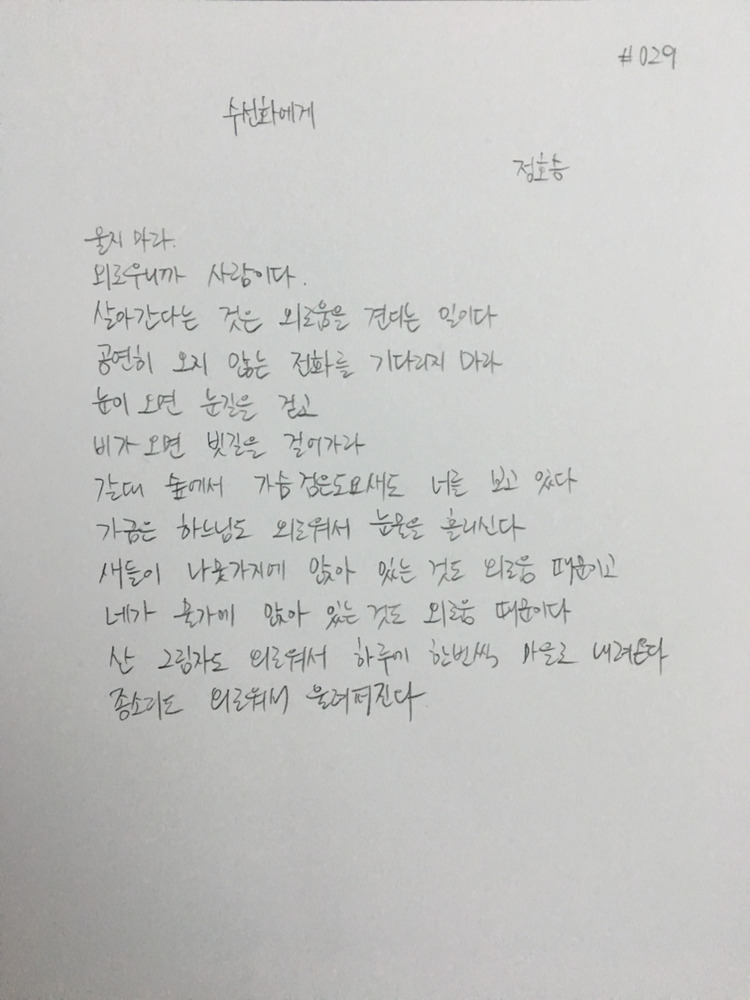 #029
수선화에게
정호승
울지 마라.
외로우니까 사람이다.
살아간다는 것은 외로움을 견디는 일이다
공연히 오지 않는 전화를 기다리지 마라
눈이 오면 눈길을 걷고
비가 오면 빗길을 걸어가라
갈대 숲에서 가슴 검은도요새도 너를 보고 있다
가끔은 하느님도 외로워서 눈물을 흘리신다
새들이 나뭇가지에 앉아 있는 것도 외로움 때문이고
네가 물가에 앉아 있는 것도 외로움 때문이다
산 그림자도 외로워서 하루에 한번씩 마을로 내려온다
종소리도 외로워서 울려퍼진다